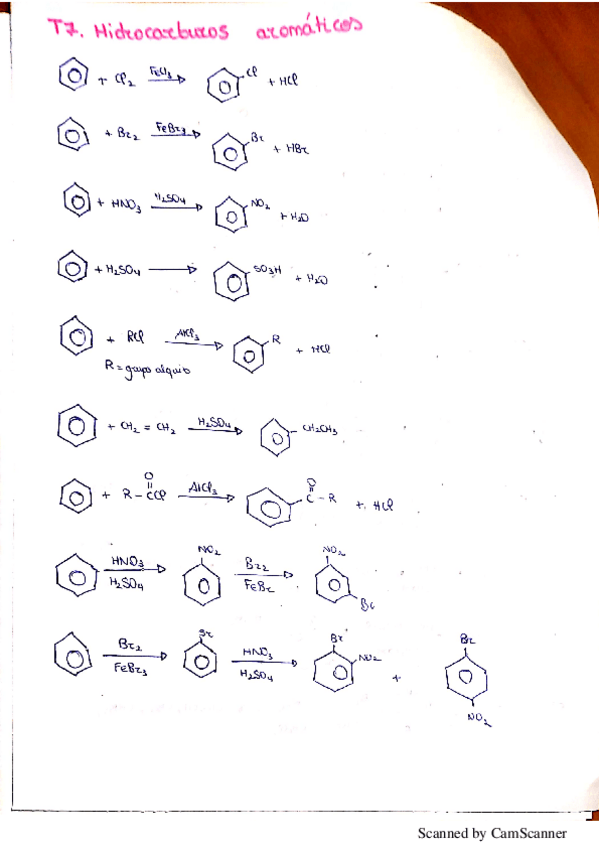 T7. Hidrocarburos aromáticos
+ Cl2 FeCl3 Cl + HCl
+ Br2 FeBr3 Br + HBr
+ HNO3 H2SO4 NO2 + H2O
+ H2SO4 SO3H + H2O
+ RCl AlCl3 R + HCl
R = grupo alquilo
+ CH2 = CH2 H2SO4 CH2CH3
O O
+ R - CCl AlCl3 C - R +. HCl
HNO3 NO2 Br2 NO2
H2SO4 FeBr Br
Br2 Br HNO3 Br NO2 + Br
FeBr3 H2SO4 NO2
Scanned by CamScanner